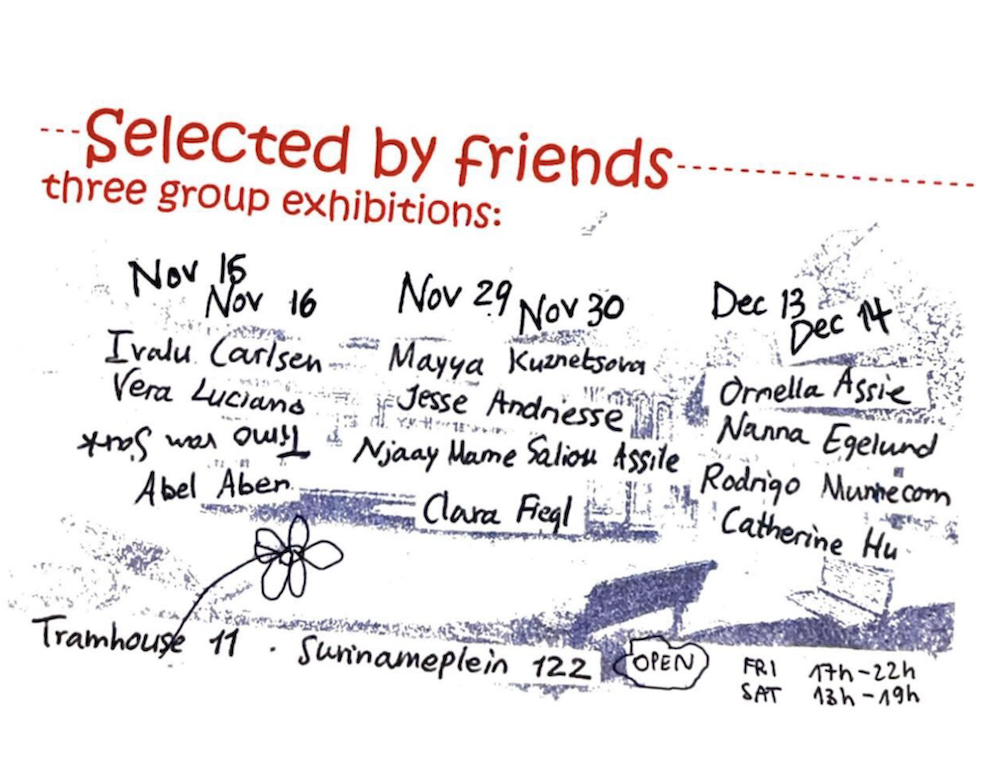 Selected by friends
three group exhibitions:
Nov 15
Nov 16
Ivalu Carlsen
Vera Luciano
Timo van Sark
Abel Aben
Nov 29
Nov 30
Mayya Kuznetsova
Jesse Andriesse
Njaay Mame Saliou Assile
Clara Fiegl
Dec 13
Dec 14
Ornella Assie
Nanna Egelund
Rodrigo
Catherine Hu
Tramhouse 11 . Surinameplein 122
OPEN
FRI 17h-22h
SAT 13h-19h